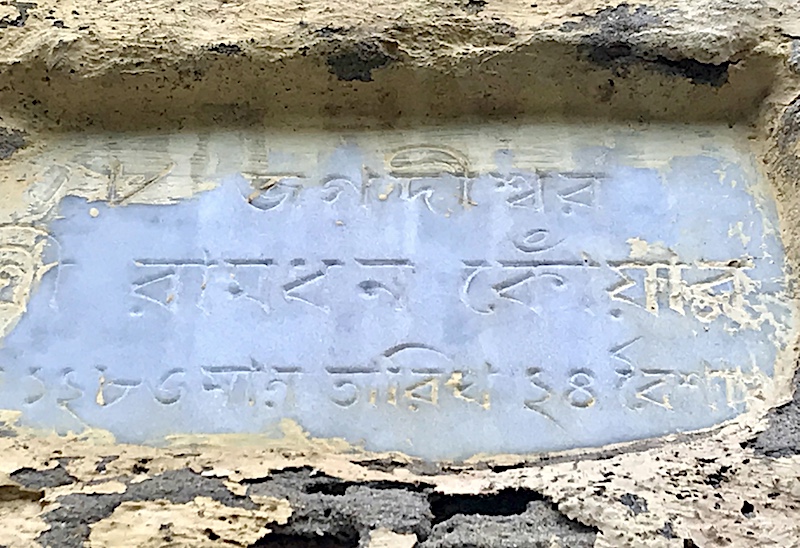 ৺ জগদীশ্বর
শ্রী রামধন কোঁয়ার
১২৮৩ সাল তারিখ ২৪ বৈশাখ